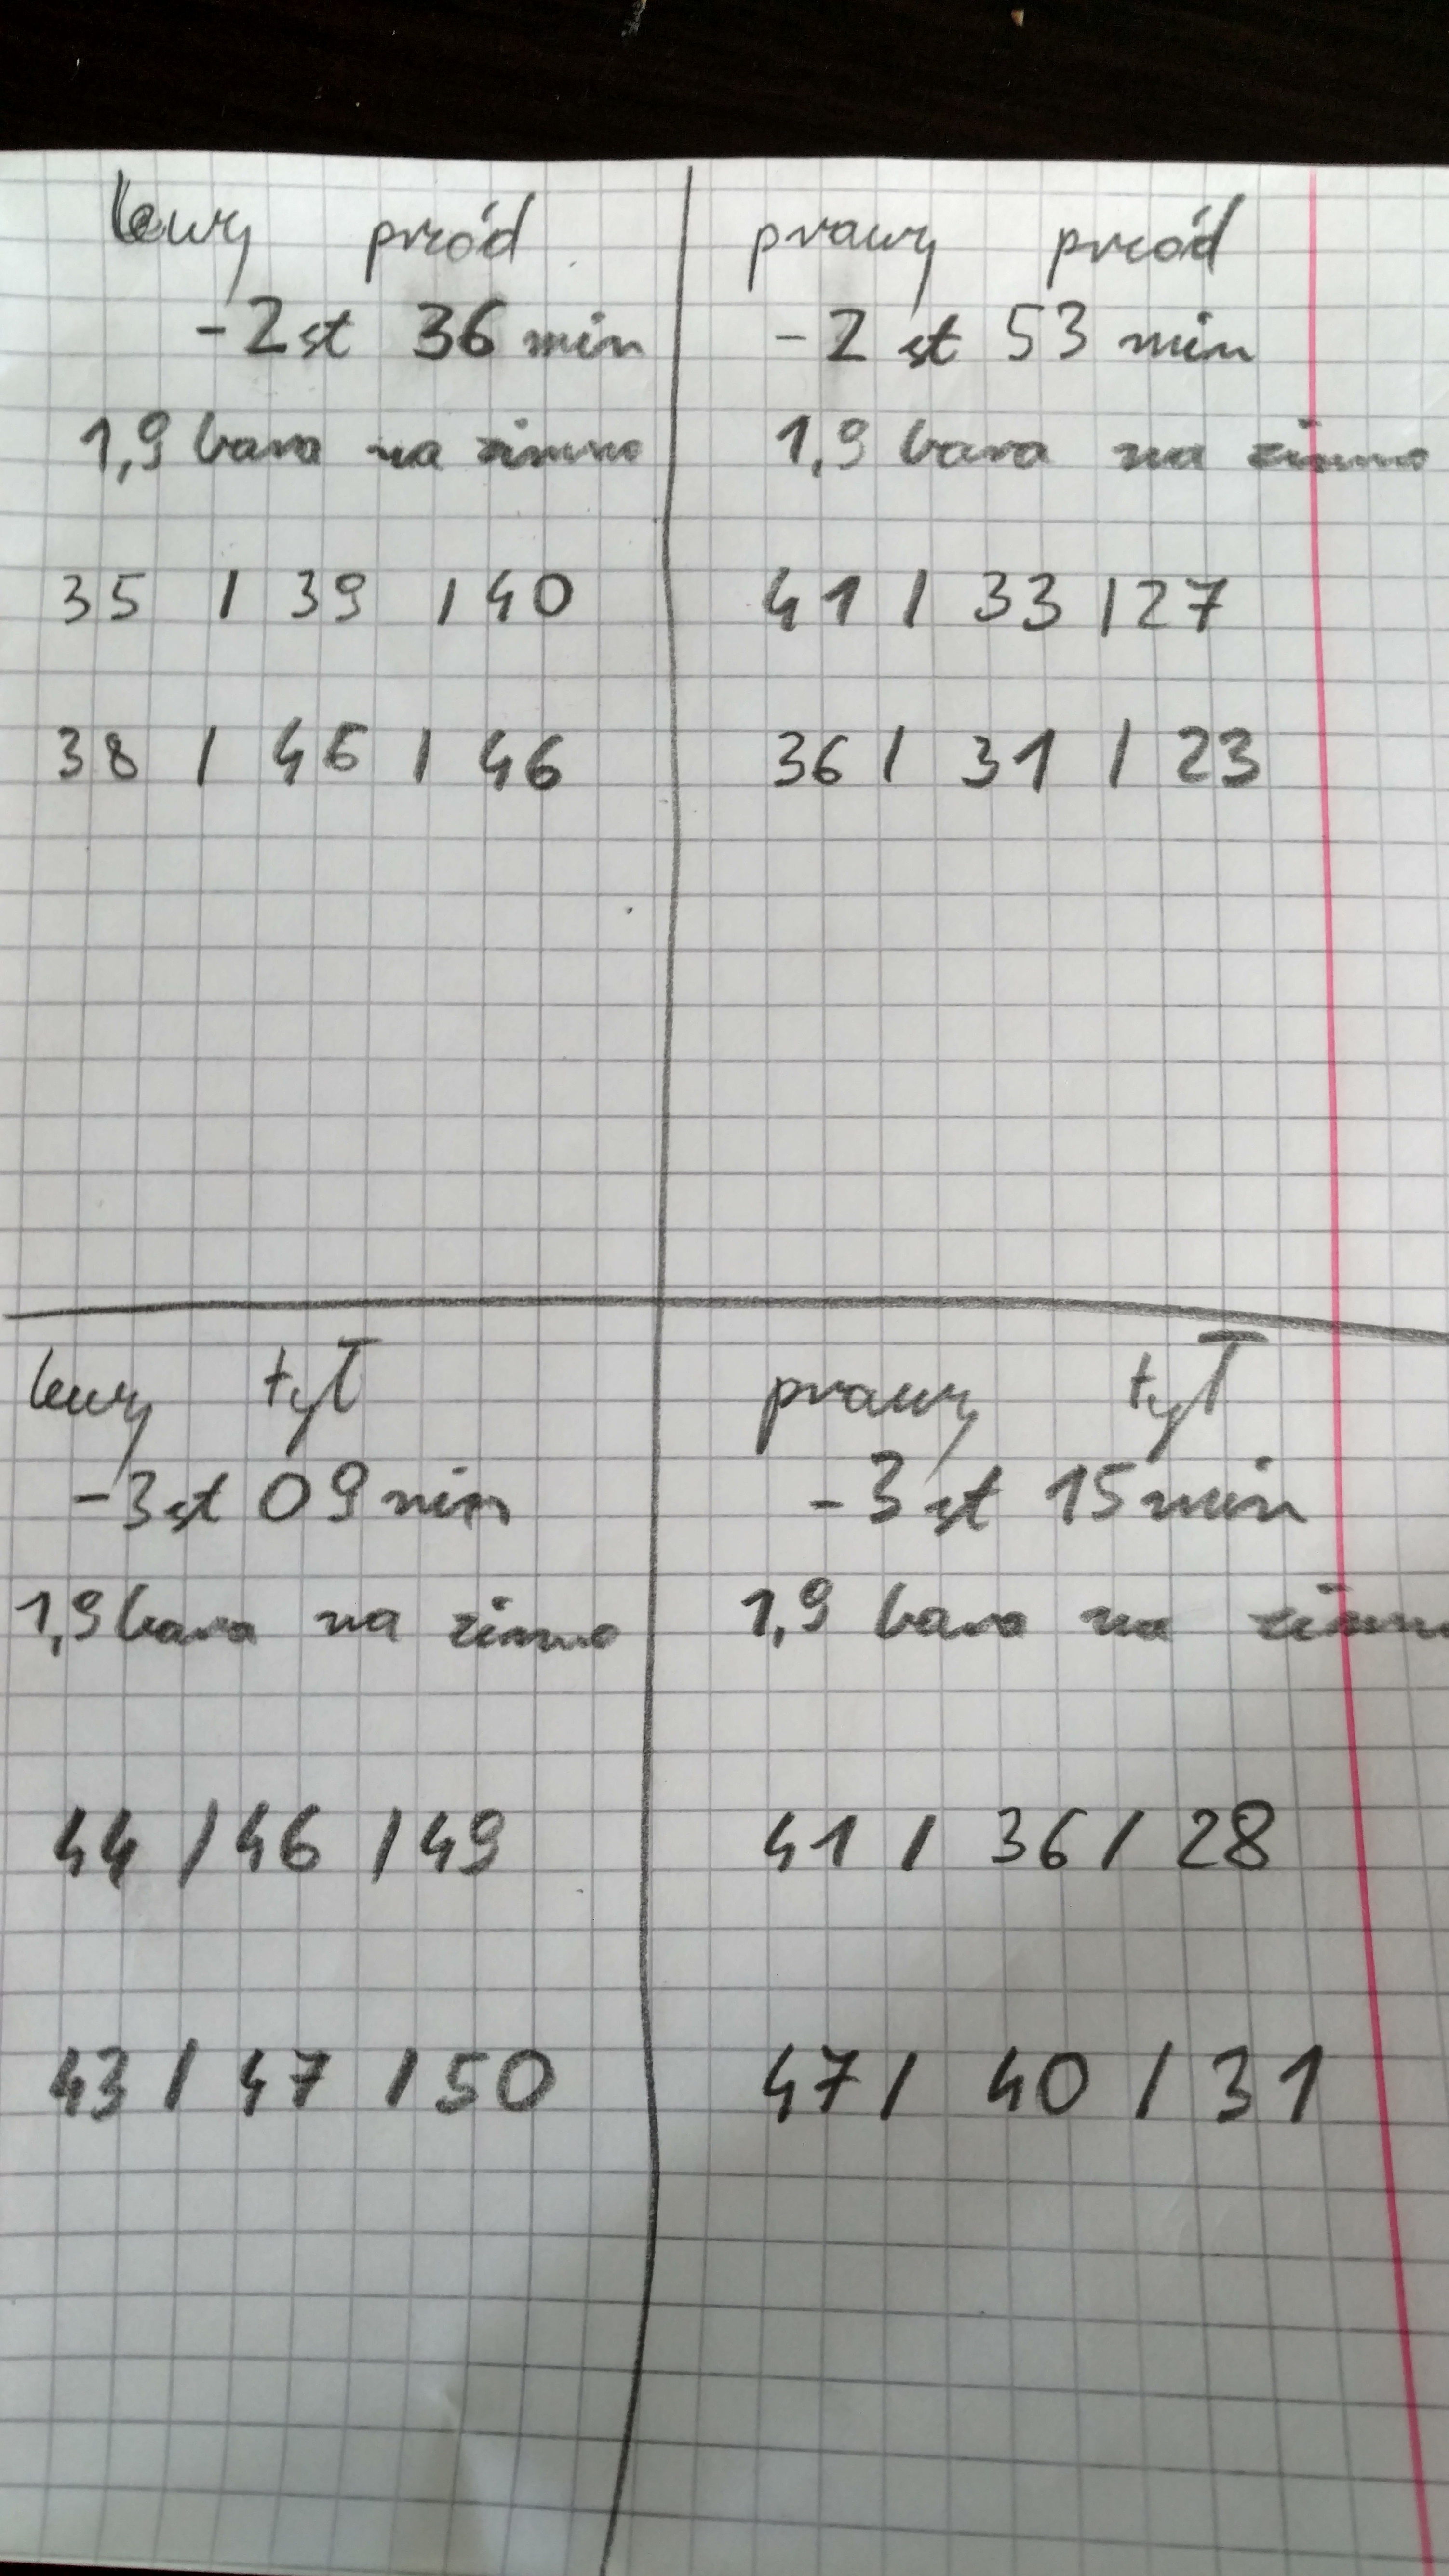 lewy przód
-2 st 36 min
1,9 bara na zimno
35 / 39 / 40
38 / 46 / 46
prawy przód
-2 st 53 min
1,9 bara na zimno
41 / 33 / 27
36 / 31 / 23
lewy tył
-3 st 09 min
1,9 bara na zimno
44 / 46 / 49
43 / 47 / 50
prawy tył
-3 st 15 min
1,9 bara na zimno
41 / 36 / 28
47 / 40 / 31